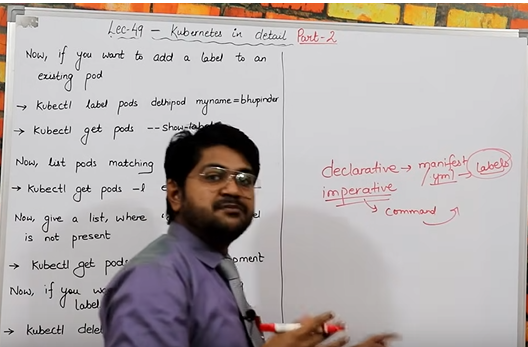 Lec-49 – Kubernetes in detail Part-2
Now, if you want to add a label to an
existing pod
→ Kubectl label pods delhipod myname=bhupinder
→ Kubectl get pods --show-labels
Now, list pods matching
→ Kubectl get pods -l
Now, give a list, where
is not present
→ Kubectl get pods
Now, if you
label
→ Kubectl
declarative → manifest
yml → labels
imperative
→ command